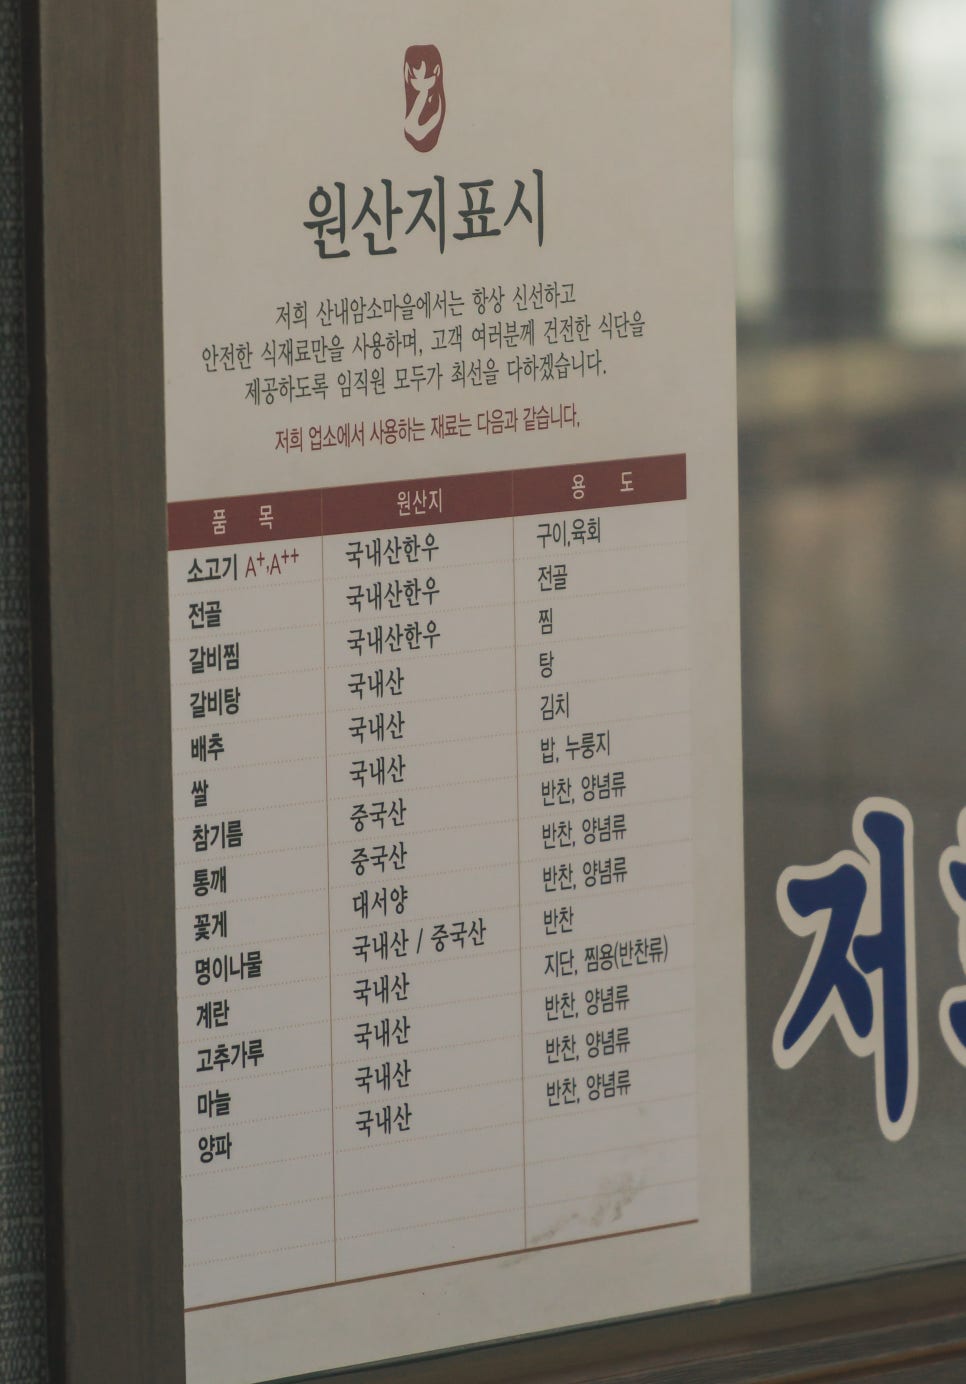 원산지표시
저희 산내암소마을에서는 항상 신선하고
안전한 식재료만을 사용하며, 고객 여러분께 건전한 식단을
제공하도록 임직원 모두가 최선을 다하겠습니다.
저희 업소에서 사용하는 재료는 다음과 같습니다.
품 목 원산지 용 도
소고기 A+,A++ 국내산한우 구이,육회
전골 국내산한우 전골
갈비찜 국내산한우 찜
갈비탕 국내산 탕
배추 국내산 김치
쌀 국내산 밥, 누룽지
참기름 중국산 반찬, 양념류
통깨 중국산 반찬, 양념류
꽃게 대서양 반찬, 양념류
명이나물 국내산 / 중국산 반찬
계란 국내산 지단, 찜용(반찬류)
고추가루 국내산 반찬, 양념류
마늘 국내산 반찬, 양념류
양파 국내산 반찬, 양념류
저